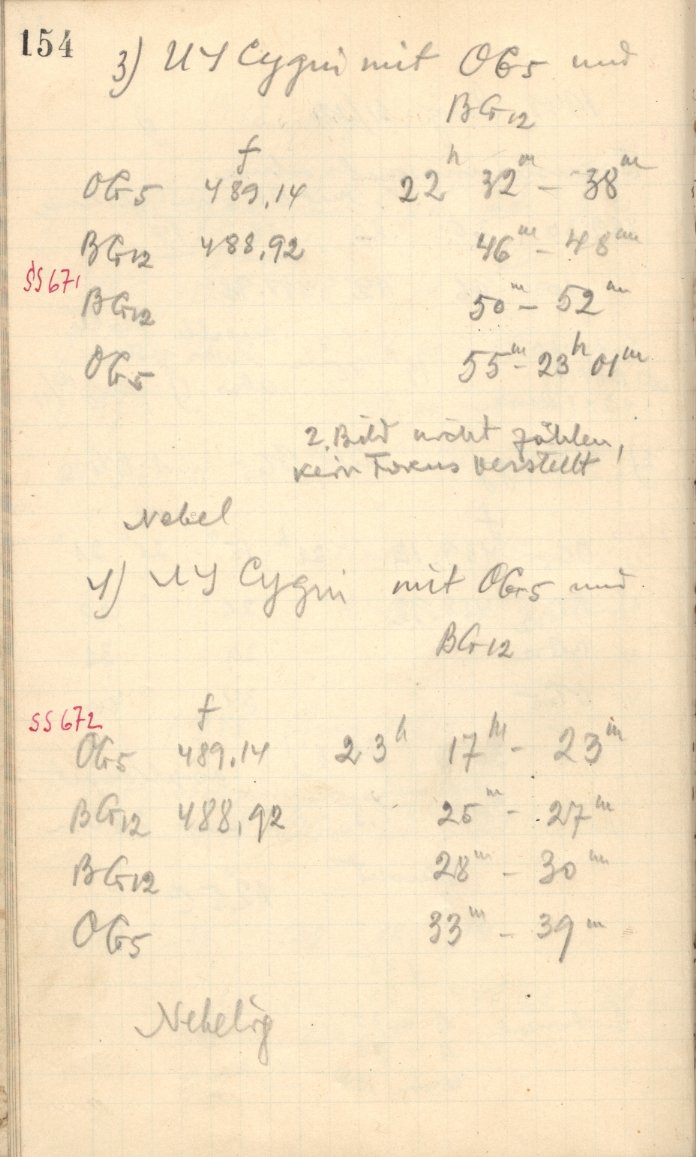 154
3) UY Cygni mit OG5 und
BG12
f
OG5 489,14 22h 32m – 38m
BG12 488,92 46m – 48m
SS671
BG12 50m – 52m
OG5 55m – 23h 01m
2. Bild nicht zählen,
kein Fokus verstellt!
Nebel
4) UY Cygni mit OG5 und
BG12
f
SS672
OG5 489,14 23h 17m – 23m
BG12 488,92 25m – 27m
BG12 28m – 30m
OG5 33m – 39m
Nebelig